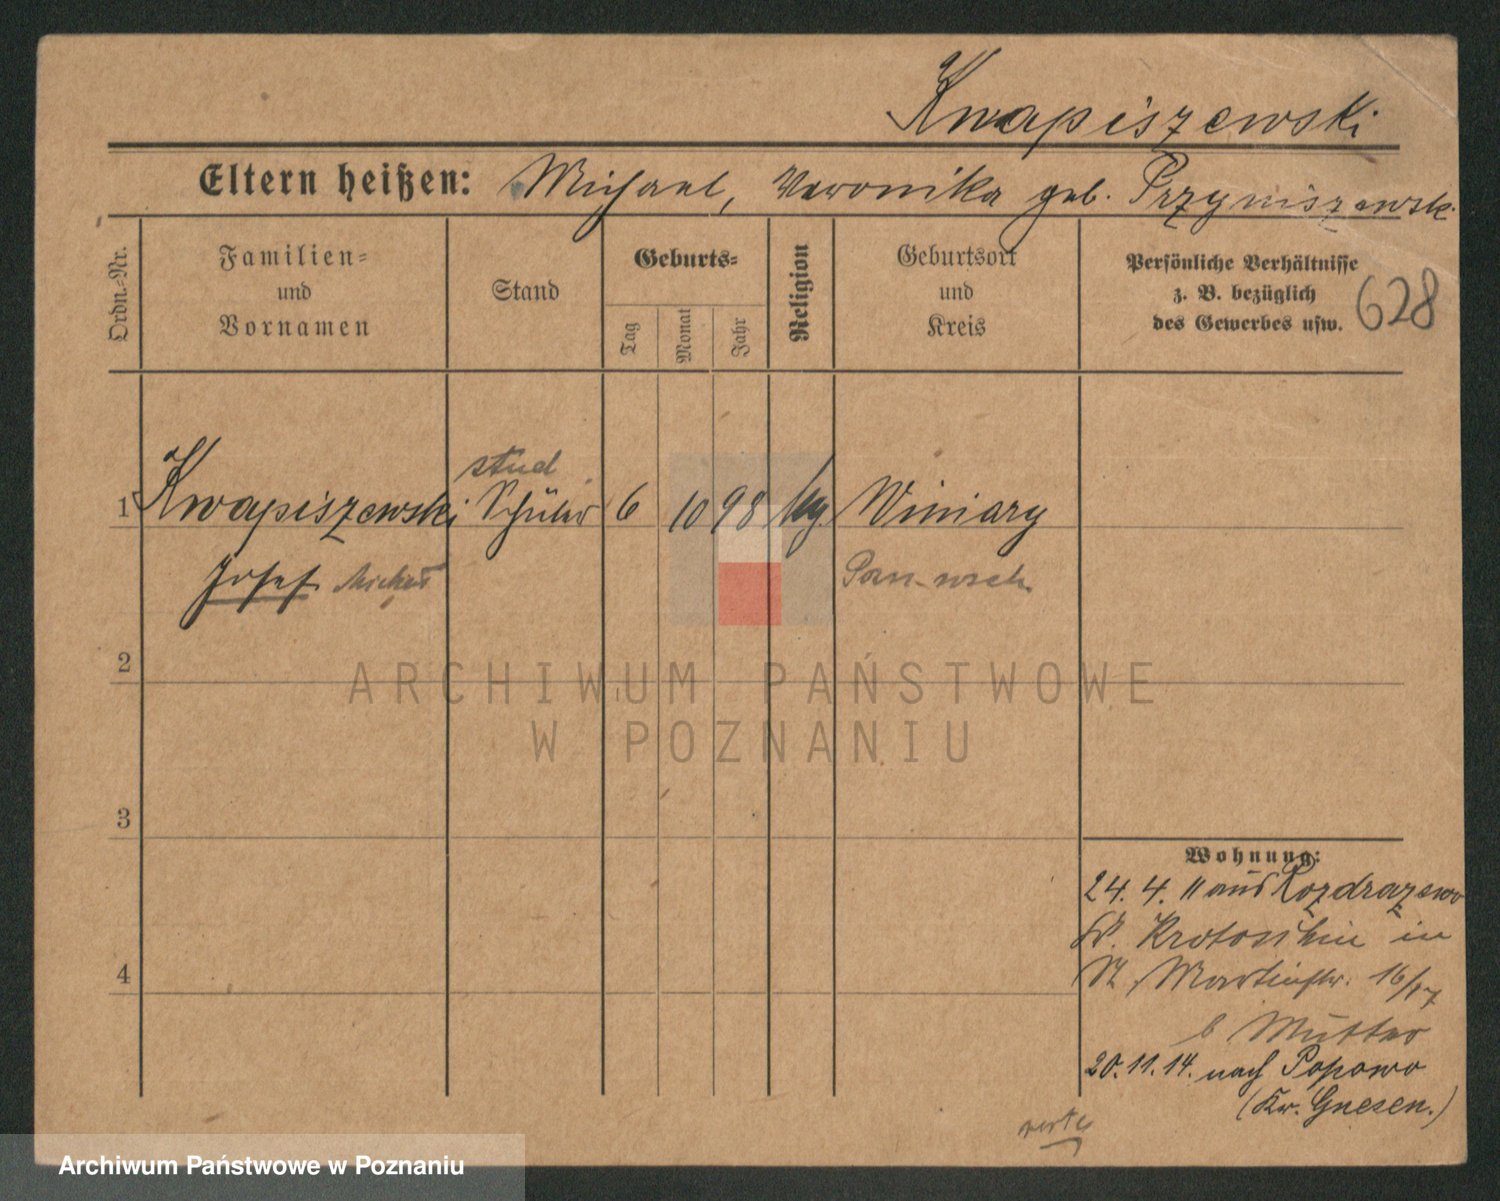 Kwapiszewski
Eltern heißen: Michael, Veronika geb. Przyniszewsk.
Ordn.-Nr.
Familien-
und
Vornamen
Stand
Geburts-
Tag
Monat
Jahr
Religion
Geburtsort
und
Kreis
Persönliche Verhältnisse
z. B. bezüglich
des Gewerbes usw.
628
stud
1 Kwapiszewski Schüler 6 10 98 Winiary
Josef
2
3
4
Wohnung:
24. 4. 11 aus Rozdrazewo
Kr. Krotoschin in
St. Martinstr. 16/17
b Mutter
20. 11. 14. nach Popowo
(Kr. Gnesen.)
verte
ARCHIWUM PAŃSTWOWE
W POZNANIU
Archiwum Państwowe w Poznaniu